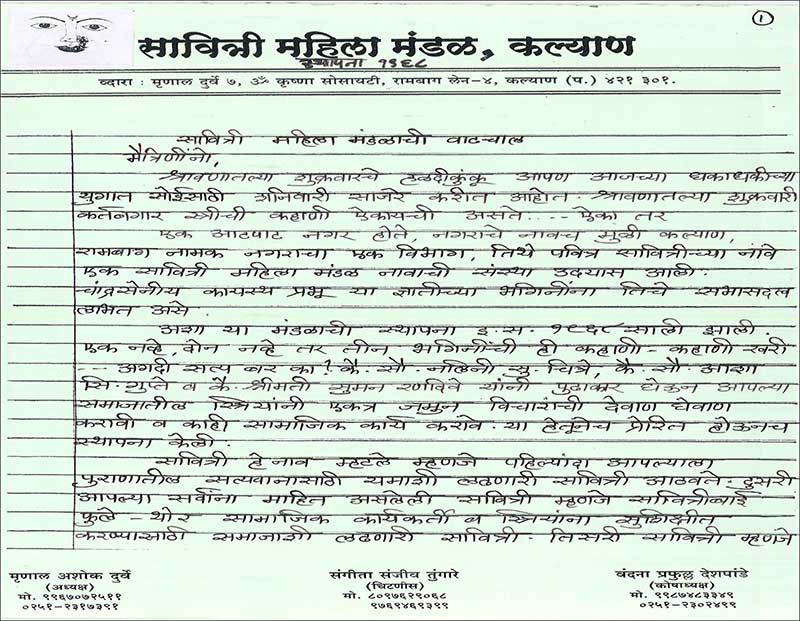 १
सावित्री महिला मंडळ, कल्याण
स्थापना १९६८
व्दारा : मृणाल दुर्वे ७, ॐ कृष्णा सोसायटी, रामबाग लेन-४, कल्याण (प.) ४२१ ३०१.
सावित्री महिला मंडळाची वाटचाल
मैत्रिणींनो,
श्रावणातल्या शुक्रवारचे हळदीकुंकू आपण आजच्या धकाधकीच्या
युगात सोईसाठी शनिवारी साजरे करीत आहोत. श्रावणातल्या शुक्रवारी
कर्तनगार स्त्रीची कहाणी ऐकायची असते.... ऐका तर
एक आटपाट नगर होते, नगराचे नावच मुळी कल्याण,
रामबाग नामक नगराचा एक विभाग, तिथे पवित्र सावित्रीच्या नांवे
एक सावित्री महिला मंडळ नावाची संस्था उदयास आली.
चांद्रसेनीय कायस्थ प्रभू या ज्ञातीच्या भगिनींना तिचे सभासदत्व
लाभत असे.
अशा या मंडळाची स्थापना इ.स. १९६८ साली झाली.
एक नव्हे, दोन नव्हे तर तीन भगिनींची ही कहाणी - कहाणी खरी
-- अगदी सत्य बर का? कै. सौ. नलिनी सु. चित्रे, कै. सौ. आशा
सि. गुप्ते व कै. श्रीमती सुमन रणदिवे यांनी पुढाकार घेऊन आपल्या
समाजातील स्त्रियांनी एकत्र जमून विचारांची देवाण घेवाण
करावी व काही सामाजिक कार्य करावे. या हेतूनेच प्रेरित होऊनच
स्थापना केली.
सावित्री हे नाव म्हटले म्हणजे पहिल्यांदा आपल्याला
पुराणातील सत्यवानासाठी यमाशी लढणारी सावित्री आठवते. दुसरी
आपल्या सर्वांना माहित असलेली सावित्री म्हणजे सावित्रीबाई
फुले - थोर सामाजिक कार्यकर्ती व स्त्रियांना सुशिक्षीत
करण्यासाठी समाजाशी लढणारी सावित्री. तिसरी सावित्री म्हणजे
मृणाल अशोक दुर्वे
(अध्यक्ष)
मो. ९९६७०७२५११
०२५१-२३१७३९१
संगीता संजीव तुंगारे
(चिटणीस)
मो. ८०९७६२९०६८
९७६९४६९३९९
वंदना प्रफुल्ल देशपांडे
(कोषाध्यक्ष)
मो. ९९८७४८३३४९
०२५१-२३०२४९९